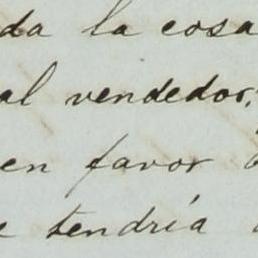 da la cosa
al vendedor,
en favor
tendría